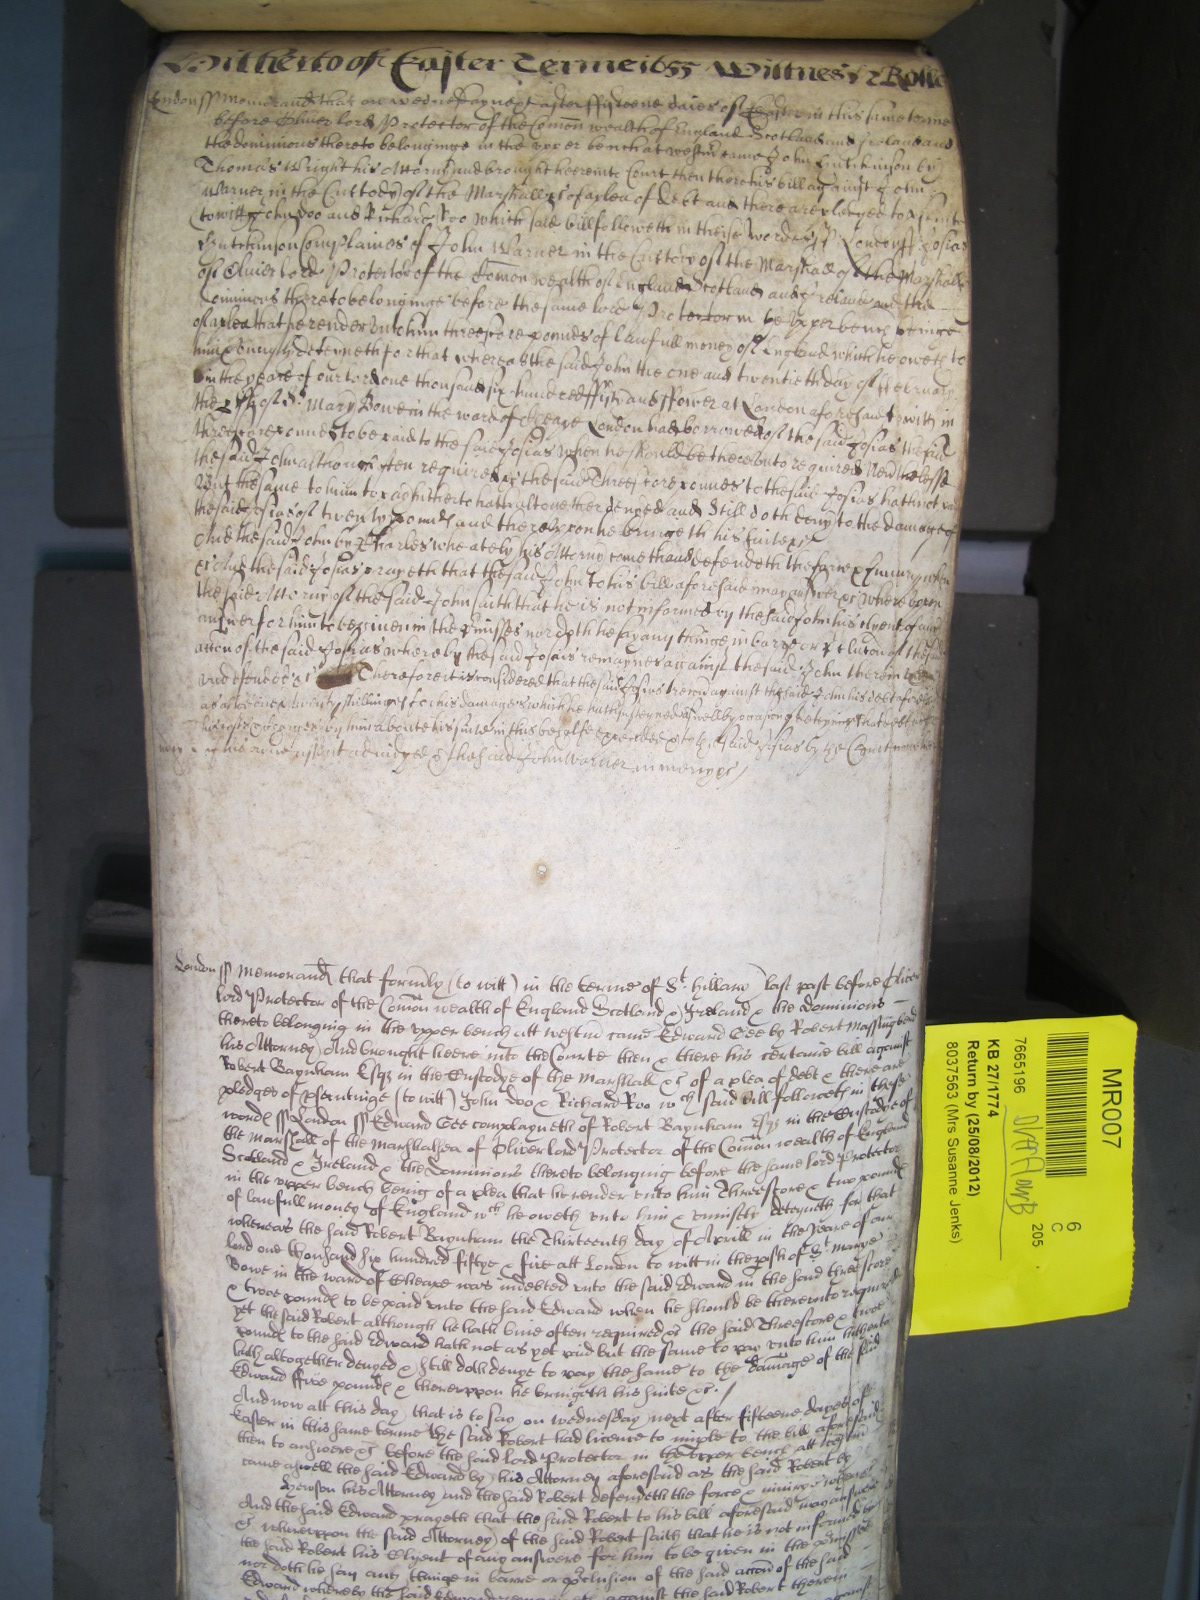 Hitherto of Easter Terme 1655 Wittnes
London ss Memorand that on wednesday next after fifteene daies of Easter in this same terme
before Oliver lord Protector of the Comon wealth of England Scotland and Ireland and
the dominions thereto belonginge in the vpper bench at westm came John Hutchinson by
Thomas Wright his Attorny and brought heere into Court then there his bill against John
Warner in the Custody of the Marshall &c of a plea of debt and there are pledges to
to witt John Doo and Richard Roo which said bill followeth in theise wordes ss London ss Josias
Hutchinson Complaines of John Warner in the Custody of the Marshall of the Marshalsea
of Oliver lord Protector of the Comon wealth of England Scotland and Ireland and the
dominions thereto belonginge before the same lord Protector in the vpper bench beinge
of a plea that he render vnto him threescore poundes of lawfull money of England which he oweth to
him & uniustly deteyneth for that whereas the said John the one and twentieth day of February
in the yeare of our lord one thousand six hundred fifty and ffower at London aforesaid to witt in
the pish of St Mary Bowe in the ward of Cheape London had borrowed of the said Josias the said
threescore poundes to be paid to the said Josias when he should be thereunto required Neverthelesse
the said John although often required &c the said Threescore poundes to the said Josias hath not
but the same to him to pay hitherto hath altogether denyed and still doth deny to the damage of
the said Josias of twenty pounds and therevppon he bringeth his suite &c
And the said John by Charles Wheately his Attorny cometh and defendeth the force & iniury when
&c And the said Josias prayeth that the said John to his bill aforesaid may answer &c where vpon
the said Attorny of the said John saith that he is not informed by the said John his clyent of any
answer for him to be given in the pmisses nor doth he say any thinge in barre or pclusion of the said
accon of the said Josias whereby the said Josias remaynes against the said John therein
vndefended &c Therefore it is considered that the said Josias recover against the said John his debt aforesaid
as also twenty shillings for his damages which he hath susteyned aswell by occasion of deteyning that debt
by him aboute his suite in this behalfe expended to the said Josias by the Court now here
adiudged & the said John Warner in mercy &c
London ss Memorand that formerly (to witt) in the terme of St Hillary last past before Oliver
lord Protector of the Comon wealth of England Scotland & Ireland & the dominions
thereto belonging in the vpper bench att westm came Edward Gee by Robert Massingberd
his Attorney And brought heere into the Courte then & there his certaine bill against
Robert Baynham Esqr in the Custodye of the Marshall &c of a plea of debt & there are
pledges of plentinge (to witt) John Doo & Richard Roo wch said bill followeth in these
words ss London ss Edward Gee complayneth of Robert Baynham Esqr in the Custodye of
the marshall of the marshalsea of Oliver lord Protector of the Comon wealth of England
Scotland & Ireland & the Dominions thereto belonging before the same lord Protector
in the vpper bench being of a plea that he render vnto him Threescore & two pounds
of lawfull money of England wch he oweth vnto him & vniustly deteyneth for that
whereas the said Robert Baynham the Thirteenth day of Aprill in the yeare of our
lord one thousand six hundred fiftye & five att London to witt in the pish of St Marye
Bowe in the ward of Cheape was indebted vnto the said Edward in the said threescore
& twoe pounds to be paid vnto the said Edward when he should be therevnto required
yet the said Robert although he hath bine often required &c the said Threescore & twoe
pounds to the said Edward hath not as yet paid but the same to pay vnto him hitherto
hath altogether denyed & still doth denye to pay the same to the damage of the said
Edward ffive pounds & therevppon he bringeth his suite &c.
And now att this day that is to say on wednesday next after fifteene dayes of
Easter in this same terme the said Robert had licence to imple to the bill aforesaid
then to answere &c before the said lord Protector in the vpper bench att westm
came aswell the said Edward by his Attorney aforesaid as the said Robert by
Hewson his Attorney and the said Robert defendeth the force & iniury when &c
And the said Edward prayeth that the said Robert to his bill aforesaid may answer
&c wherevppon the said Attorney of the said Robert saith that he is not informed by
the said Robert his Clyent of any answere for him to be given in the pmisses
nor doth he say any thinge in barre or pclusion of the said accon of the said
Edward whereby the said Edward remaynes against the said Robert therein
MR007
7665196
6
C
205
KB 27/1774
Return by (25/08/2012)
8037563 (Mrs Susanne Jenks)